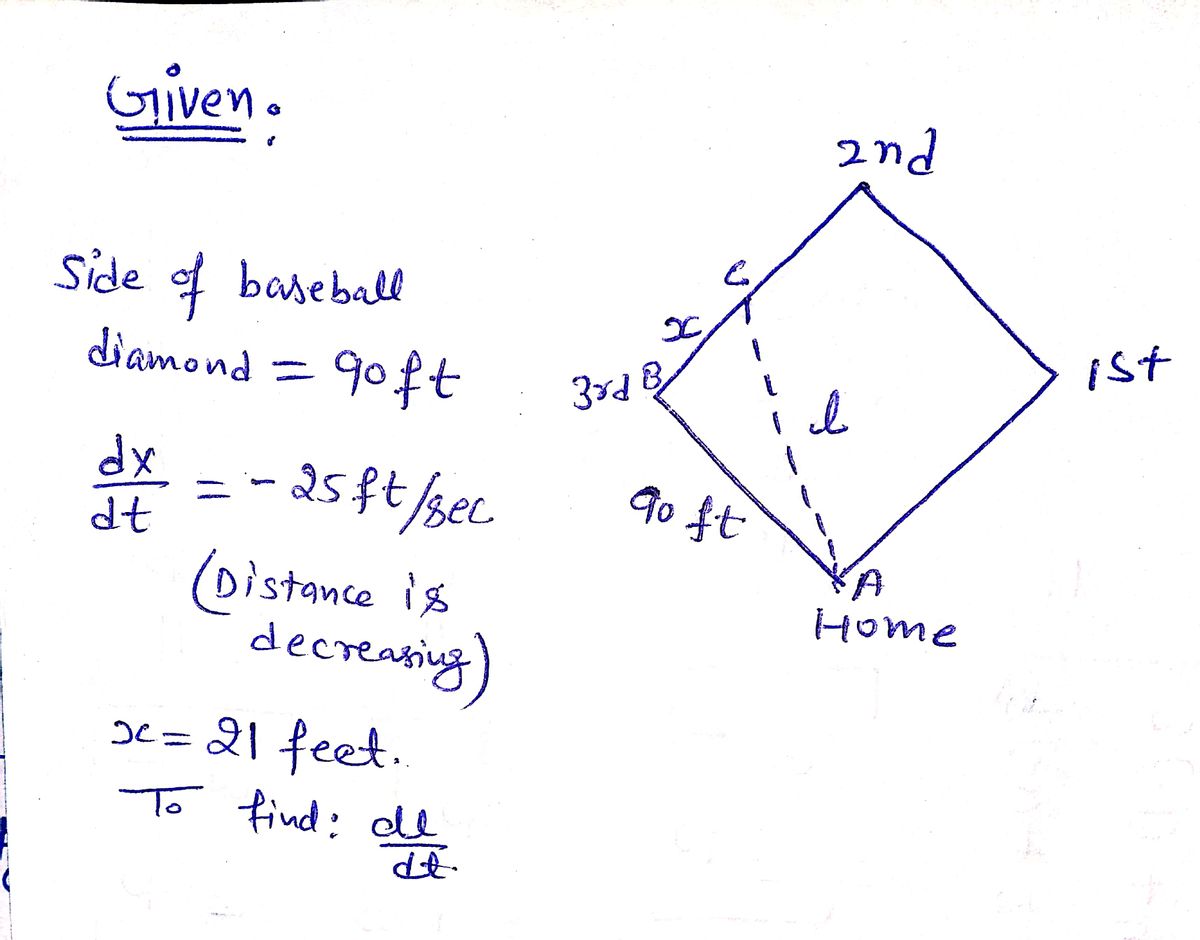 Given:
Side of baseball
diamond = 90 ft
dx/dt = - 25 ft/sec
(Distance is
decreasing)
x = 21 feet.
To find: dl/dt.
2nd
C
x
3rd B
1st
l
90 ft
A
Home